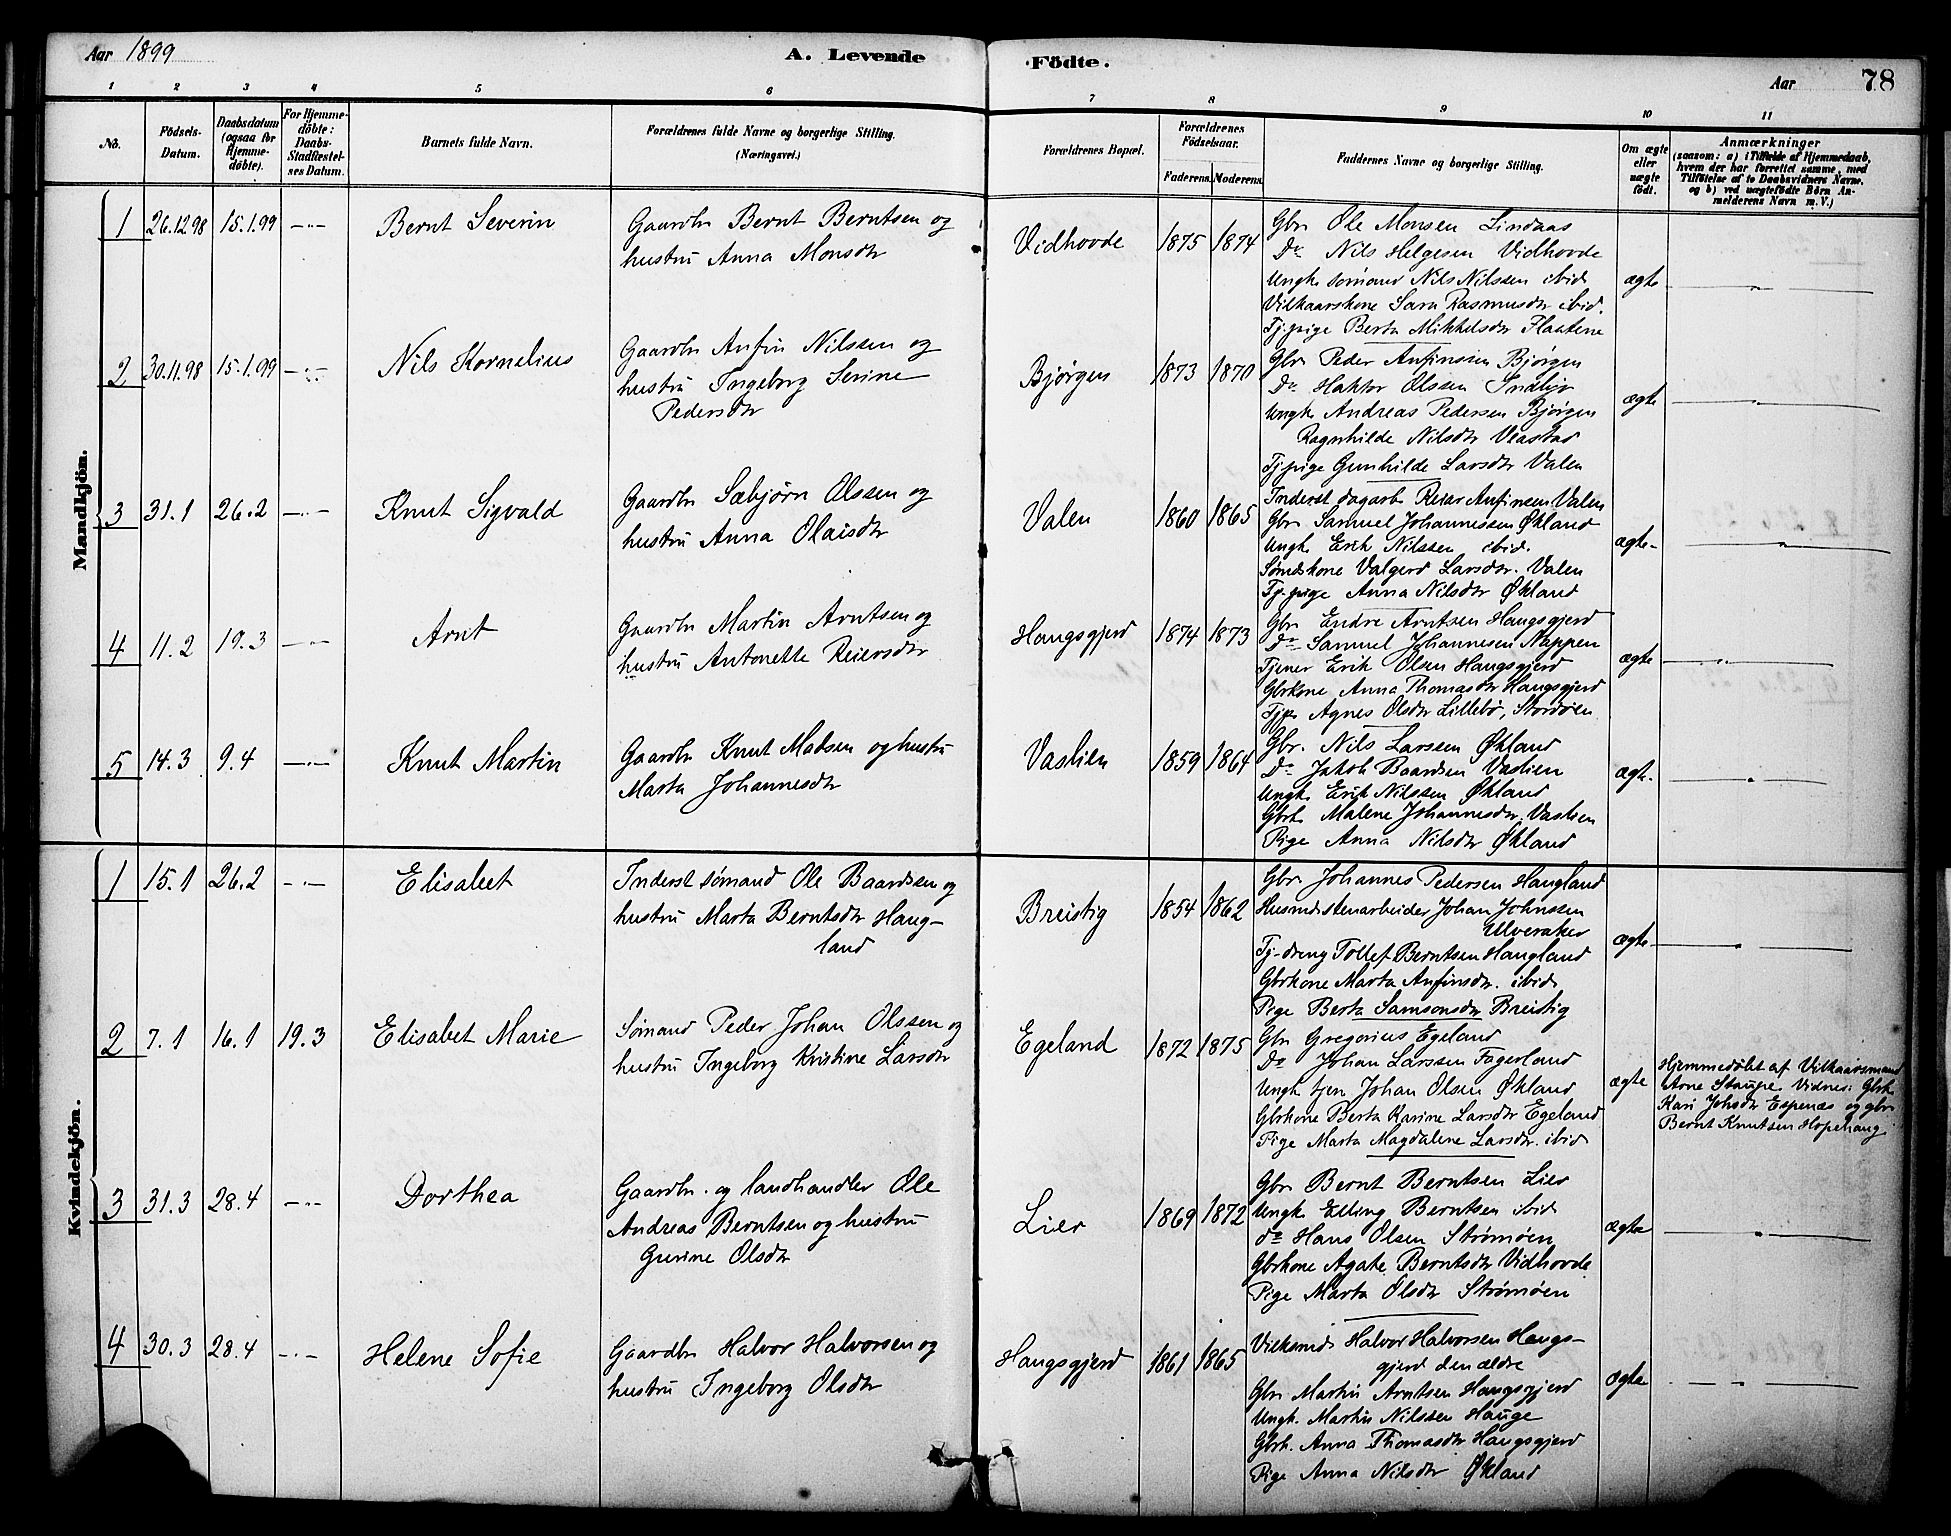 Aar 1899
A. Levende
Födte.
Aar
78
1 2 3 4 5 6 7 8 9 10 11
No.
Födsels-Datum.
Daabsdatum (ogsaa for Hjemme-döbte).
For Hjemme-döbte: Daabs-Stadfæstel-ses Datum.
Barnets fulde Navn.
Forældrenes fulde Navne og borgerlige Stilling.
(Næringsvei.)
Forældrenes Bopæl.
Forældrenes Födselsaar.
Faderens. Moderens.
Faddernes Navne og borgerlige Stilling.
Om ægte eller uægte födt.
Anmærkninger
(saasom: a) i Tilfælde af Hjemmedaab,
hvem der har forrettet samme, med
Tilföielse af to Daabsvidners Navne,
og b) ved uægtefödte Börn An-
melderens Navn m. V.)
Mandkjön.
1 26.12 98 15.1.99 Bernt Severin
Gaardbr Bernt Berntsen og
hustru Anna Monsdtr
Vidhovde 1875 1874
Gbr Ole Monsen Lindaas
Do Nils Helgesen Vidhovde
Ungk. sømand Nils Nilssen ibid
Vilkaarskone Sara Rasmusdtr ibid.
Tj.pige Berta Mikkelsdtr Flaatene
ægte
2 30.11.98 15.1.99 Nils Kornelius
Gaardbr Anfin Nilssen og
hustru Ingeborg Serine
Pedersdtr
Bjørgen 1873 1870
Gbr Peder Anfinsen Bjørgen
Do Haktor Olssen
Ungk Andreas Pedersen Bjørgen
Ragnhilde Nilsdtr
Tj.pige Gunhilde Larsdtr Valen
ægte
3 31.1 26.2 Knut Sigvald
Gaardbr Sæbjørn Olssen og
hustru Anna Olaisdtr
Valen 1860 1865
Inderst dagarb Reiar Anfinsen Valen
Gbr Samuel Johannessen Økland
Ungk Erik Nilssen ibid.
Sømdskone Valgerd Larsdtr. Valen
Tj.pige Anna Nilsdtr Økland
ægte
4 11.2 19.3 Arnt
Gaardbr Martin Arntsen og
hustru Antonette Reiersdtr
Haugsgjerd 1874 1873
Gbr Endre Arntsen Haugsgjerd
Do Samuel Johannesen Nappen
Tjener Erik Olsen Haugsgjerd
Gbrkone Anna Thomasdtr Haugsgjerd
Tjp. Agnes Olsdtr Lillebø, Stordøen
ægte
5 14.3 9.4 Knut Martin
Gaardbr Knut Madsen og hustru
Marta Johannesdtr
Vaslien 1859 1864
Gbr. Nils Larssen Økland
Do Jakob Baardsen Vaslien
Ungk Erik Nilssen Økland
Gbrk Malene Johannesdtr. Vaslien
Pige Anna Nilsdtr Økland
ægte
Kvindekjön.
1 15.1 26.2 Elisabet
Inderst sømand Ole Baardsen og
hustru Marta Berntsdtr Haug-
land
Breistig 1854 1862
Gbr Johannes Pedersen Haugland
Husmd stenarbeider Johan Johnssen
Ulveraker
Tj-dreng Tollef Berntsen Haugland
Gbrkone Marta Anfinsdtr. ibid
Pige Berta Samsonsdtr Breistig
ægte
2 7.1 16.1 19.3 Elisabet Marie
Sømand Peder Johan Olssen og
hustru Ingeborg Kristine Larsdtr
Egeland 1872 1875
Gbr Gregorius Egeland
Do Johan Larssen Fagerland
Ungk tjen Johan Olsen Økland
Gbrkone Berta Karine Larsdtr Egeland
Pige Marta Magdalene Larsdtr. ibid
ægte
Hjemmedøbt af Vilkaarsmand
Arne Vidnes: Gbrk
Kari Johsdtr Espenæs og gbr
Bernt Knutsen Hopehaug
3 31.3 28.4 Dorthea
Gaardbr. og landhandler Ole
Andreas Berntsen og hustru
Gurine Olsdtr
Lier 1869 1872
Gbr Bernt Berntsen Lier
Ungk Elling Berntsen ibid
do Hans Olsen Strømøen
Gbrkone Agate Berntsdtr Vidhovde
Pige Marta Olsdtr Strømøen
ægte
4 30.3 28.4 Helene Sofie
Gaardbr Halvor Halvorsen og
hustru Ingeborg Olsdtr
Haugsgjerd 1861 1865
Vilkmd Halvor Halvorsen Haugs-
gjerd den ældre
Gbr Martin Arntsen Haugsgjerd
Ungk. Martin Nilssen Hauge
Gbrk. Anna Thomasdtr Haugsgjerd
Pige Anna Nilsdtr Økland
ægte